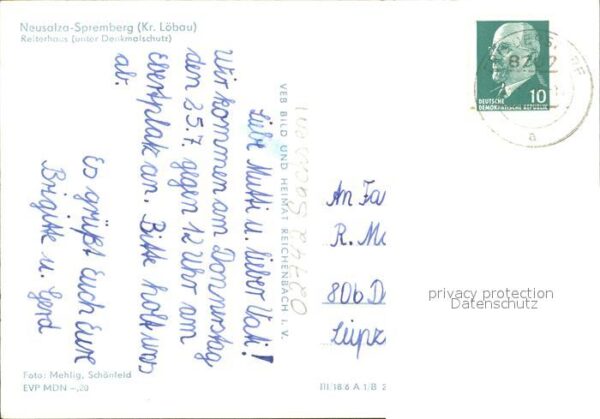 Neusalza-Spremberg (Kr. Löbau)
Reiterhaus (unter Denkmalschutz)
Liebe Mutti u. lieber Vati!
Wir kommen am Donnerstag
den 25.7. gegen 12 Uhr am
Ebertplatz an. Bitte holt uns
ab.
Es grüßt Euch Eure
Brigitte u. Gerd
VEB BILD UND HEIMAT REICHENBACH I. V.
DEUTSCHE
DEMOKRATISCHE REPUBLIK
10
a
An Fa
R. M
806 D
Leipz
privacy protection
Datenschutz
Foto: Mehlig, Schönfeld
EVP MDN –,20
III/18/6 A 1/B 2